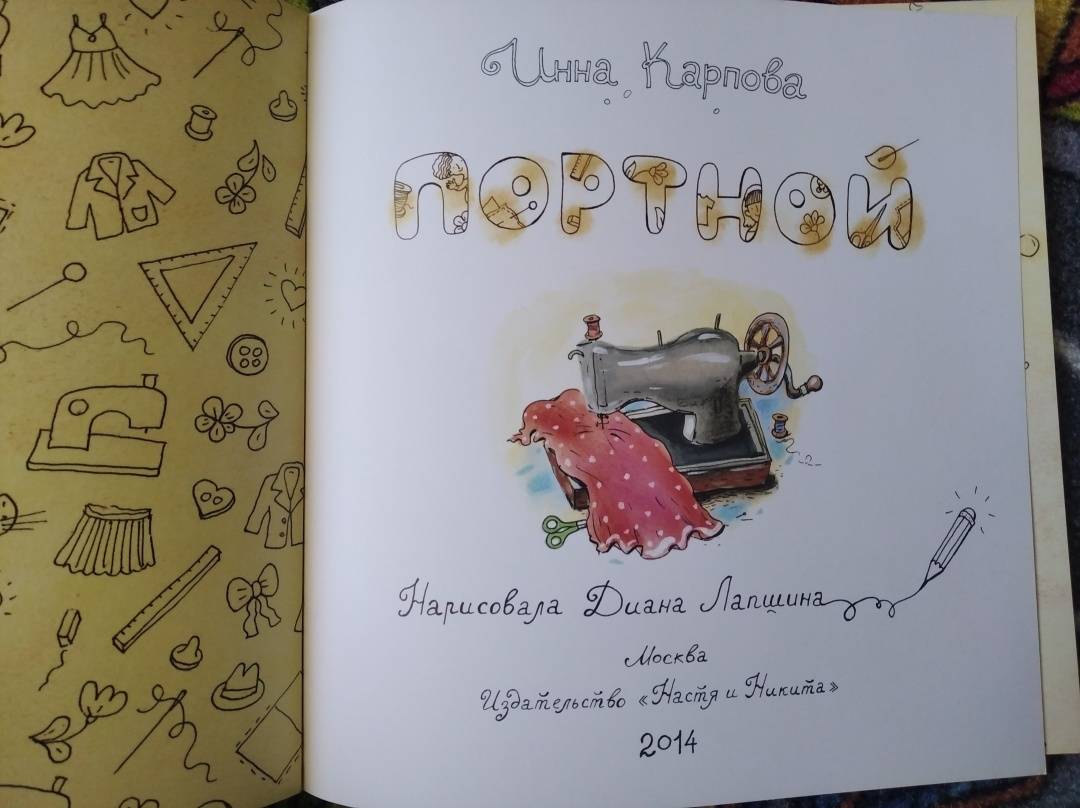 Инна Карпова
ПОРТНОЙ
Нарисовала Диана Лапшина
Москва
Издательство «Настя и Никита»
2014